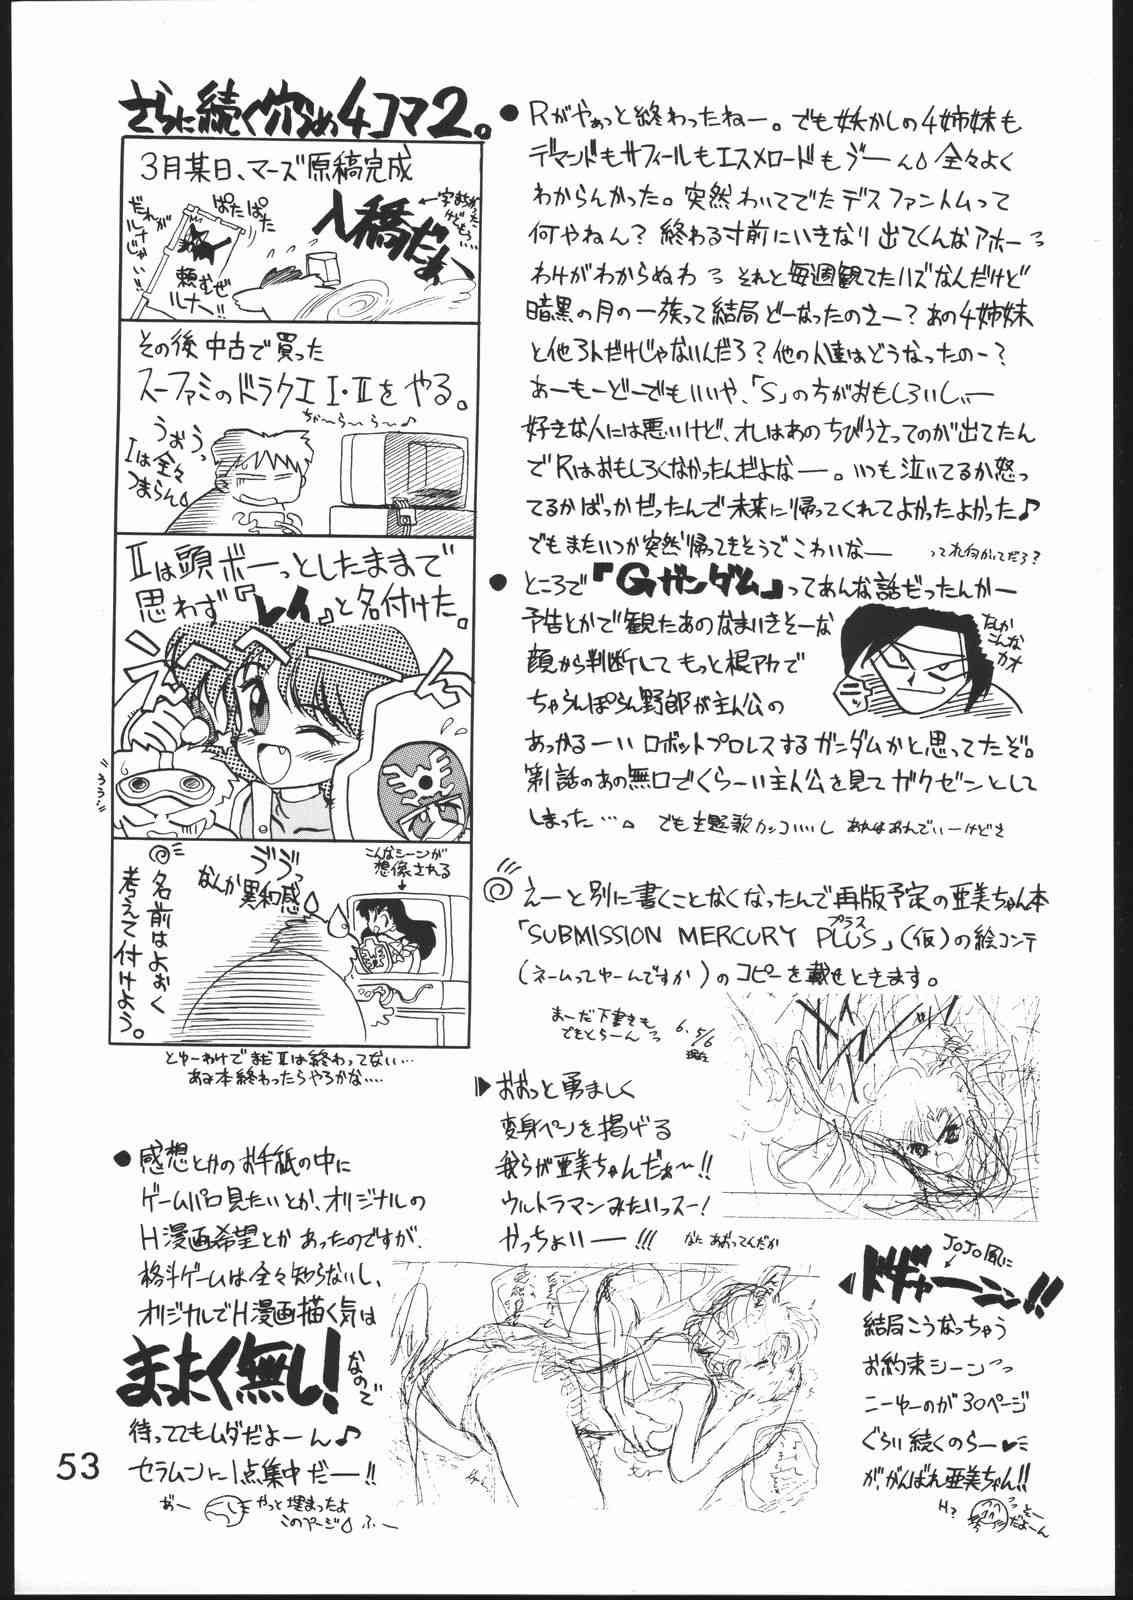 さらに続く穴うめ4コマ2。
3月某日、マーズ原稿完成
入稿だぁ〜
ぱたぱた
だれが
ルナじゃい
頼むぜ
ルナー!!
その後中古で買った
スーファミのドラクエI・IIをやる。
ちゃ〜ら〜ら〜♪
うぉうっ
Iは全々
つまらん
IIは頭ボーっとしたままで
思わず『レイ』と名付けた。
こんなシーンが
想像される
ゔゔっ
なんか異和感
名前はよおく
考えて付けよう。
とゆーわけでまだIIは終わってない…
あみ本終わったらやろかな‥‥
●感想とかのお手紙の中に
ゲームパロ見たいとか、オリジナルの
H漫画希望とかあったのですが、
格斗ゲームは全々知らないし、
オリジナルでH漫画描く気は
まったく無し!なので
待っててもムダだよーん♪
セラムンに1点集中だー!!
おー
やっと埋まったよ
このページ ふー
53
●Rがやぁっと終わったねー。でも妖かしの4姉妹も
デマンドもサフィールもエスメロードもゔーん 全々よく
わからんかった。突然わいてでたデスファントムって
何やねん?終わる寸前にいきなり出てくんなアホーっ
わけがわからぬわっ それと毎週観てたハズなんだけど
暗黒の月の一族って結局どーなったのさー?あの4姉妹
と他3人だけじゃないんだろ?他の人達はどうなったのー?
あーもーどーでもいいや、「S」の方がおもしろいしぃー
好きな人には悪いけど、オレはあのちびうさってのが出てたん
でRはおもしろくなかったんだよなー。いつも泣いてるか怒っ
てるかばっかだったんで未来に帰ってくれてよかったよかった♪
でもまたいつか突然帰ってきそうでこわいなー
●ところで『Gガンダム』ってあんな話だったんかー
予告とかで観たあのなまいきそーな
顔から判断してもっと根アカで
ちゃらんぽらん野郎が主人公の
あっかるーいロボットプロレスするガンダムかと思ってたぞ。
第1話のあの無口でくらーい主人公を見てガクゼンとして
しまった…。 でも主題歌カッコいいし あれはあれでいーけどさ
なんか
こんな
カオ
ニッ
えーと別に書くことなくなったんで再版予定の亜美ちゃん本
「SUBMISSION MERCURY PLUS」(仮)の絵コンテ
プラス
(ネームってゆーんですか)のコピーを載せときます。
まーだ下書きも
できとらーんっ
6.5/6
現在
▶おおっと勇ましく
変身ペンを掲げる
我らが亜美ちゃんだぁ〜!!
ウルトラマンみたいっスー!
かっちょいいー!!!
なにあおってんだか
JOJO風に
ドギャーーン!!
結局こうなっちゃう
お約束シーンっ
こーゆーのが30ページ
ぐらい続くのらー♥
が、がんばれ亜美ちゃん!!
H?
だよーん